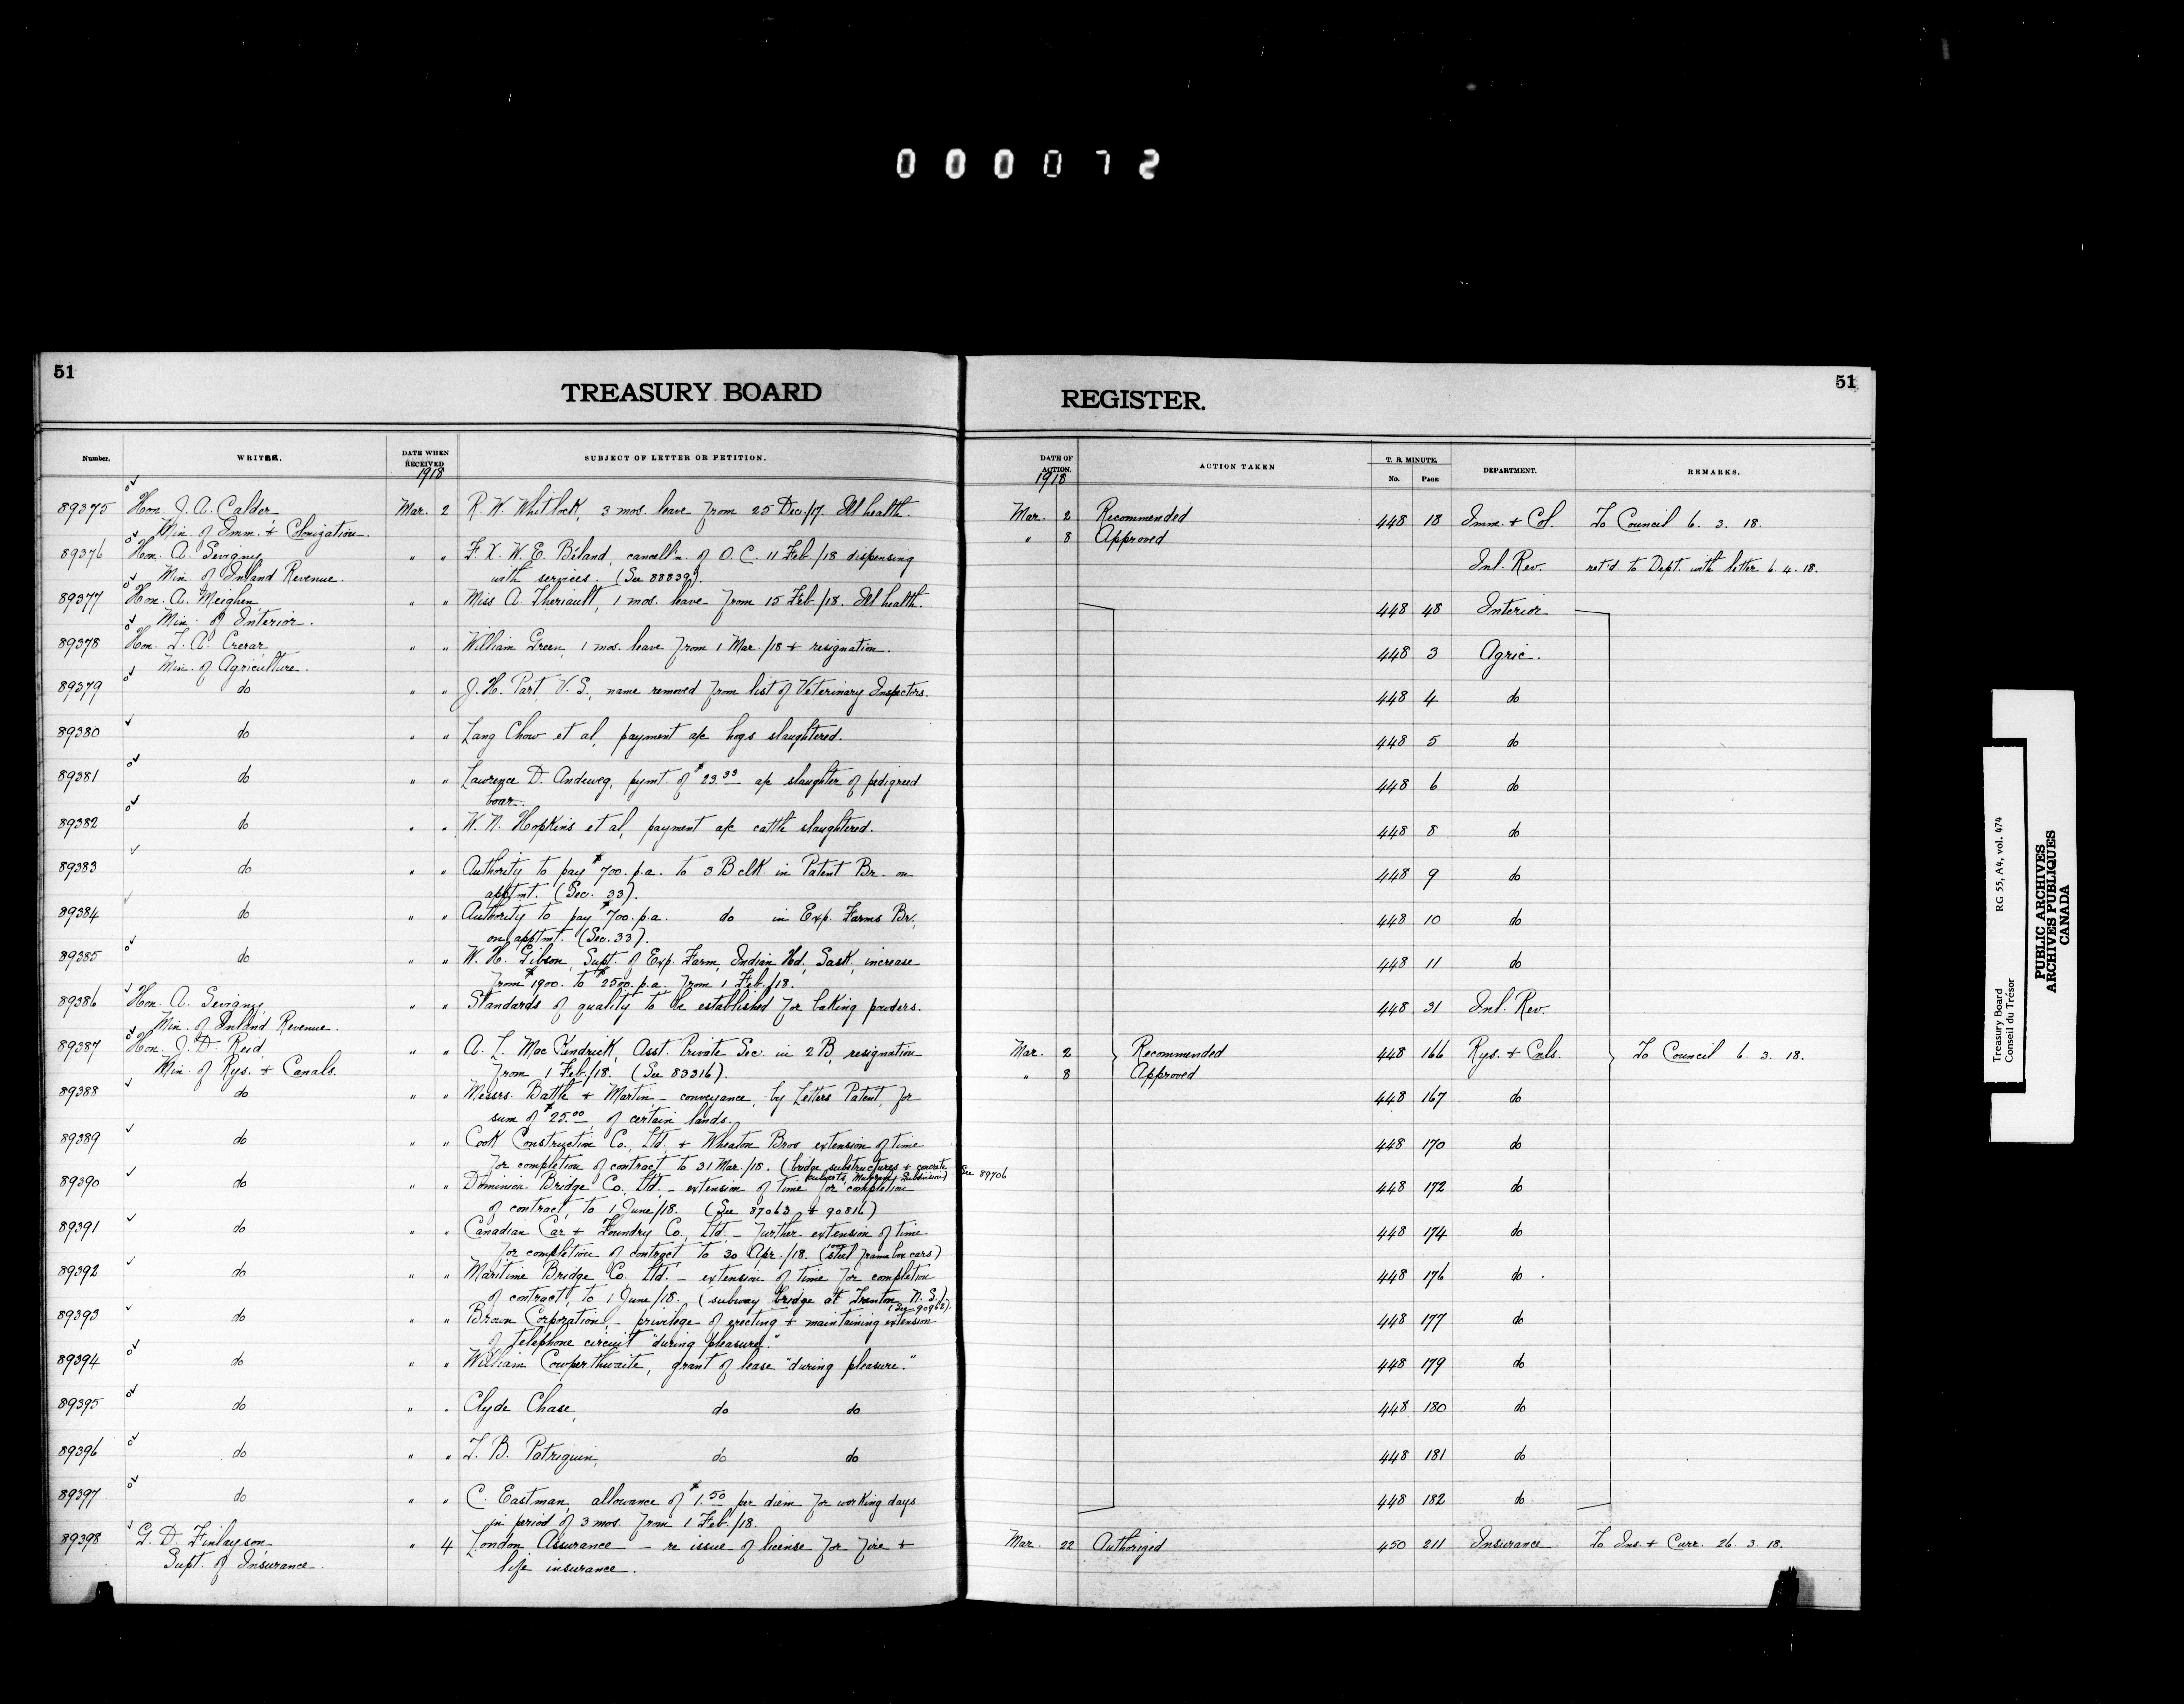 000072
51
TREASURY BOARD
REGISTER.
51
Number. WRITER. DATE WHEN RECEIVED SUBJECT OF LETTER OR PETITION. DATE OF ACTION. ACTION TAKEN T. B. MINUTE. No. PAGE DEPARTMENT. REMARKS.
1918 1918
89375 Hon. J. A. Calder Mar. 2 R. W. Whitlock, 3 mos. leave from 25 Dec./17. Ill health. Mar. 2 Recommended 448 18 Imm. & Col. To Council 6. 3. 18.
Min. of Imm. & Colonization. " 8 Approved
89376 Hon. A. Sevigny, " " F. X. W. E. Béland, cancell'n. of O. C. 11 Feb./18 dispensing Inl. Rev. ret'd. to Dept. with letter 6. 4. 18.
Min. of Inland Revenue. with services. (See 88839).
89377 Hon. A. Meighen, " " Miss A. Theriault, 1 mos. leave from 15 Feb./18. Ill health. 448 48 Interior
Min. of Interior.
89378 Hon. T. A. Crerar, " " William Green, 1 mos. leave from 1 Mar./18 & resignation. 448 3 Agric.
Min. of Agriculture.
89379 do " " J. H. Part V. S., name removed from list of Veterinary Inspectors. 448 4 do
89380 do " " Lang Chow et al, payment a/c hogs slaughtered. 448 5 do
89381 do " " Lawrence D. Andeweg, pymt. of $23.33 a/c slaughter of pedigreed 448 6 do
boar.
89382 do " " W. N. Hopkins et al, payment a/c cattle slaughtered. 448 8 do
89383 do " " Authority to pay $700. p.a. to 3 B clk. in Patent Br. on 448 9 do
apptmt. (Sec. 33).
89384 do " " Authority to pay $700. p.a. do in Exp. Farms Br. 448 10 do
on apptmt. (Sec. 33).
89385 do " " W. H. Gibson, Supt. of Exp. Farm, Indian Hd, Sask, increase 448 11 do
from $1900. to $2500. p.a. from 1 Feb./18.
89386 Hon. A. Sevigny, " " Standards of quality to be established for baking powders. 448 31 Inl. Rev.
Min. of Inland Revenue.
89387 Hon. J. D. Reid, " " A. L. MacKendrick, Asst. Private Sec. in 2 B, resignation Mar. 2 Recommended 448 166 Rys. & Cnls. To Council 6. 3. 18.
Min. of Rys. & Canals. from 1 Feb./18. (See 83316). " 8 Approved
89388 do " " Messrs. Battle & Martin - conveyance, by Letters Patent, for 448 167 do
sum of $25.00, of certain lands.
89389 do " " Cook Construction Co., Ltd. & Wheaton Bros. extension of time 448 170 do
for completion of contract, to 31 Mar./18. (bridge substructures & concrete
culverts, Subdivision) See 89706
89390 do " " Dominion Bridge Co., Ltd. - extension of time for completion 448 172 do
of contract, to 1 June/18. (See 87063 & 90816)
89391 do " " Canadian Car & Foundry Co., Ltd. - further extension of time 448 174 do
for completion of contract to 30 Apr./18. (1000 steel frame box cars)
89392 do " " Maritime Bridge Co. Ltd. - extension of time for completion 448 176 do.
of contract, to 1 June/18. (subway bridge at Trenton, N. S.)
(See 90962).
89393 do " " Brown Corporation, - privilege of erecting & maintaining extension 448 177 do
of telephone circuit "during pleasure".
89394 do " " William Cowperthwaite, grant of lease "during pleasure." 448 179 do
89395 do " " Clyde Chase, do do 448 180 do
89396 do " " T. B. Patriquin, do do 448 181 do
89397 do " " C. Eastman, allowance of $1.50 per diem for working days 448 182 do
in period of 3 mos. from 1 Feb./18.
89398 G. D. Finlayson, " 4 London Assurance - re issue of license for fire & Mar. 22 Authorized 450 211 Insurance To Ins. & Curr. 26. 3. 18.
Supt. of Insurance. life insurance.
Treasury Board RG 55, A4, vol. 474
Conseil du Trésor
PUBLIC ARCHIVES
ARCHIVES PUBLIQUES
CANADA